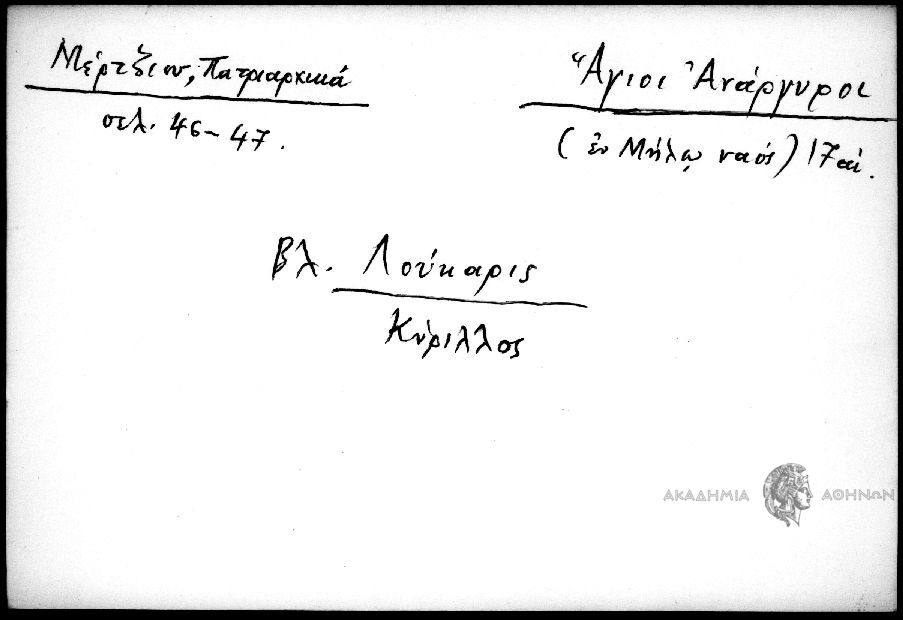 Μέρτζιου, Πατριαρχικά
σελ. 46-47.
Ἅγιοι Ἀνάργυροι
(ἐν Μήλῳ ναός) 17 αἰ.
βλ. Λούκαρις
Κύριλλος
ΑΚΑΔΗΜΙΑ ΑΘΗΝΩΝ